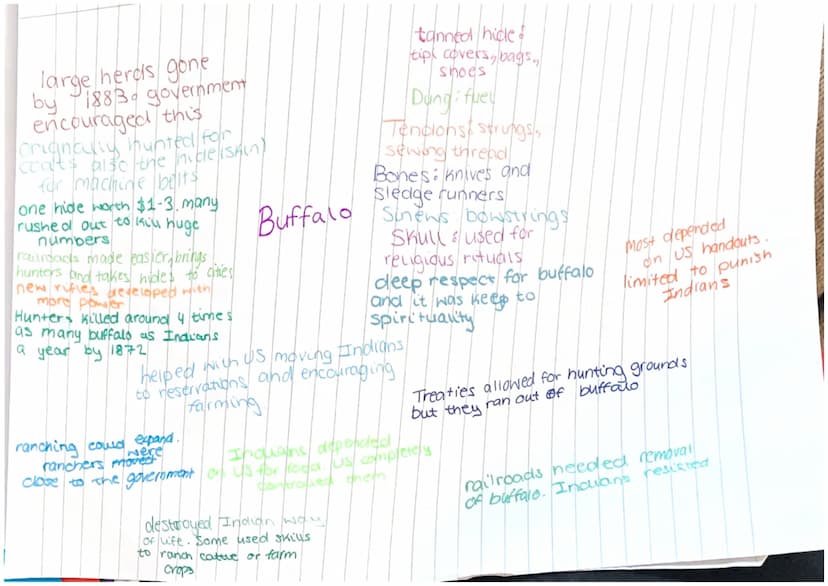 large herds gone
by 1883. government
encouraged this
originally hunted for
coats also the hide (skin)
for machine belts
one hide worth $1-3. many
rushed out to kill huge
numbers
railroads made easier, brings
hunters and takes hides to cities
new rifles developed with
more power
Hunters killed around 4 times
as many buffalo as Indians
a year by 1872
Buffalo
tanned hide:
tipi covers, bags,
shoes
Dung: fuel
Tendons: strings,
sewing thread
Bones: knives and
sledge runners
Sinews bowstrings
Skull: used for
religious rituals
deep respect for buffalo
and it was keep to
spirituality
most depended
on US handouts.
limited to punish
Indians
helped with US moving Indians
to reservations and encouraging
farming
Treaties allowed for hunting grounds
but they ran out of buffalo
ranching could expand.
ranchers were
close to the goverment
Indians depended
on US for food. US completely
controlled them
railroads needed removal
of buffalo. Indians resisted
destroyed Indian way
of life. Some used skills
to ranch cattle or farm
crops